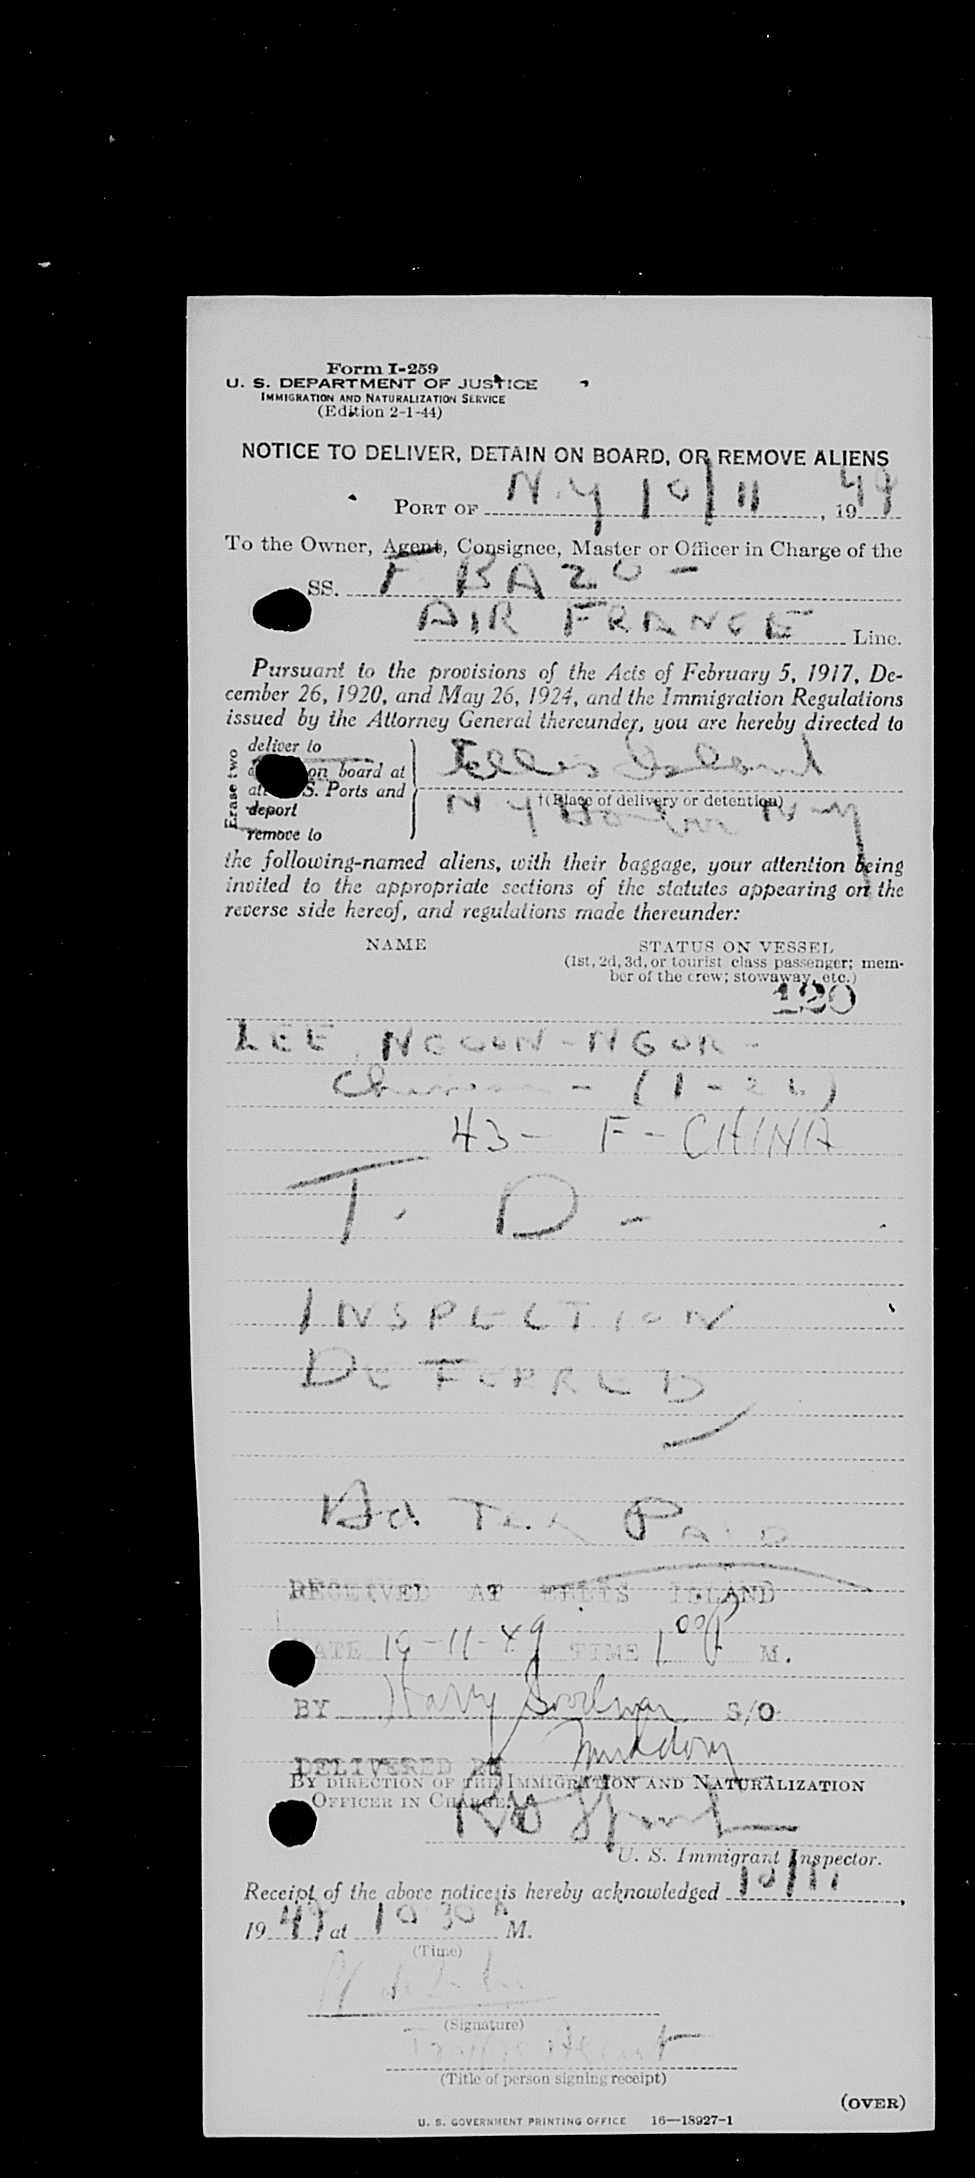 Form I-259
U. S. DEPARTMENT OF JUSTICE
IMMIGRATION AND NATURALIZATION SERVICE
(Edition 2-1-44)
NOTICE TO DELIVER, DETAIN ON BOARD, OR REMOVE ALIENS
PORT OF N.Y 10/11, 1949
To the Owner, Agent, Consignee, Master or Officer in Charge of the
SS. F BAZO -
AIR FRANCE Line.
Pursuant to the provisions of the Acts of February 5, 1917, De-
cember 26, 1920, and May 26, 1924, and the Immigration Regulations
issued by the Attorney General thereunder, you are hereby directed to
Erase two
deliver to
on board at
S. Ports and
deport
remove to
Ellis Island
†(Place of delivery or detention)
N Y Harbor N-Y
the following-named aliens, with their baggage, your attention being
invited to the appropriate sections of the statutes appearing on the
reverse side hereof, and regulations made thereunder:
NAME
STATUS ON VESSEL
(1st, 2d, 3d, or tourist class passenger; mem-
ber of the crew; stowaway, etc.)
120
LEE,
43 - F - CHINA
T. D -
INSPECTION
DEFERRED
Hd. Tax PAID
RECEIVED AT ELLIS ISLAND
DATE 10-11-49 TIME 1 00 P M.
BY Harry Goodman S/O
DELIVERED BY
BY DIRECTION OF THE IMMIGRATION AND NATURALIZATION
OFFICER IN CHARGE.
U. S. Immigrant Inspector.
Receipt of the above notice is hereby acknowledged 10/11,
1949, at 10 30 A M.
(Time)
(Signature)
Agent
(Title of person signing receipt)
(OVER)
U. S. GOVERNMENT PRINTING OFFICE 16—18927-1